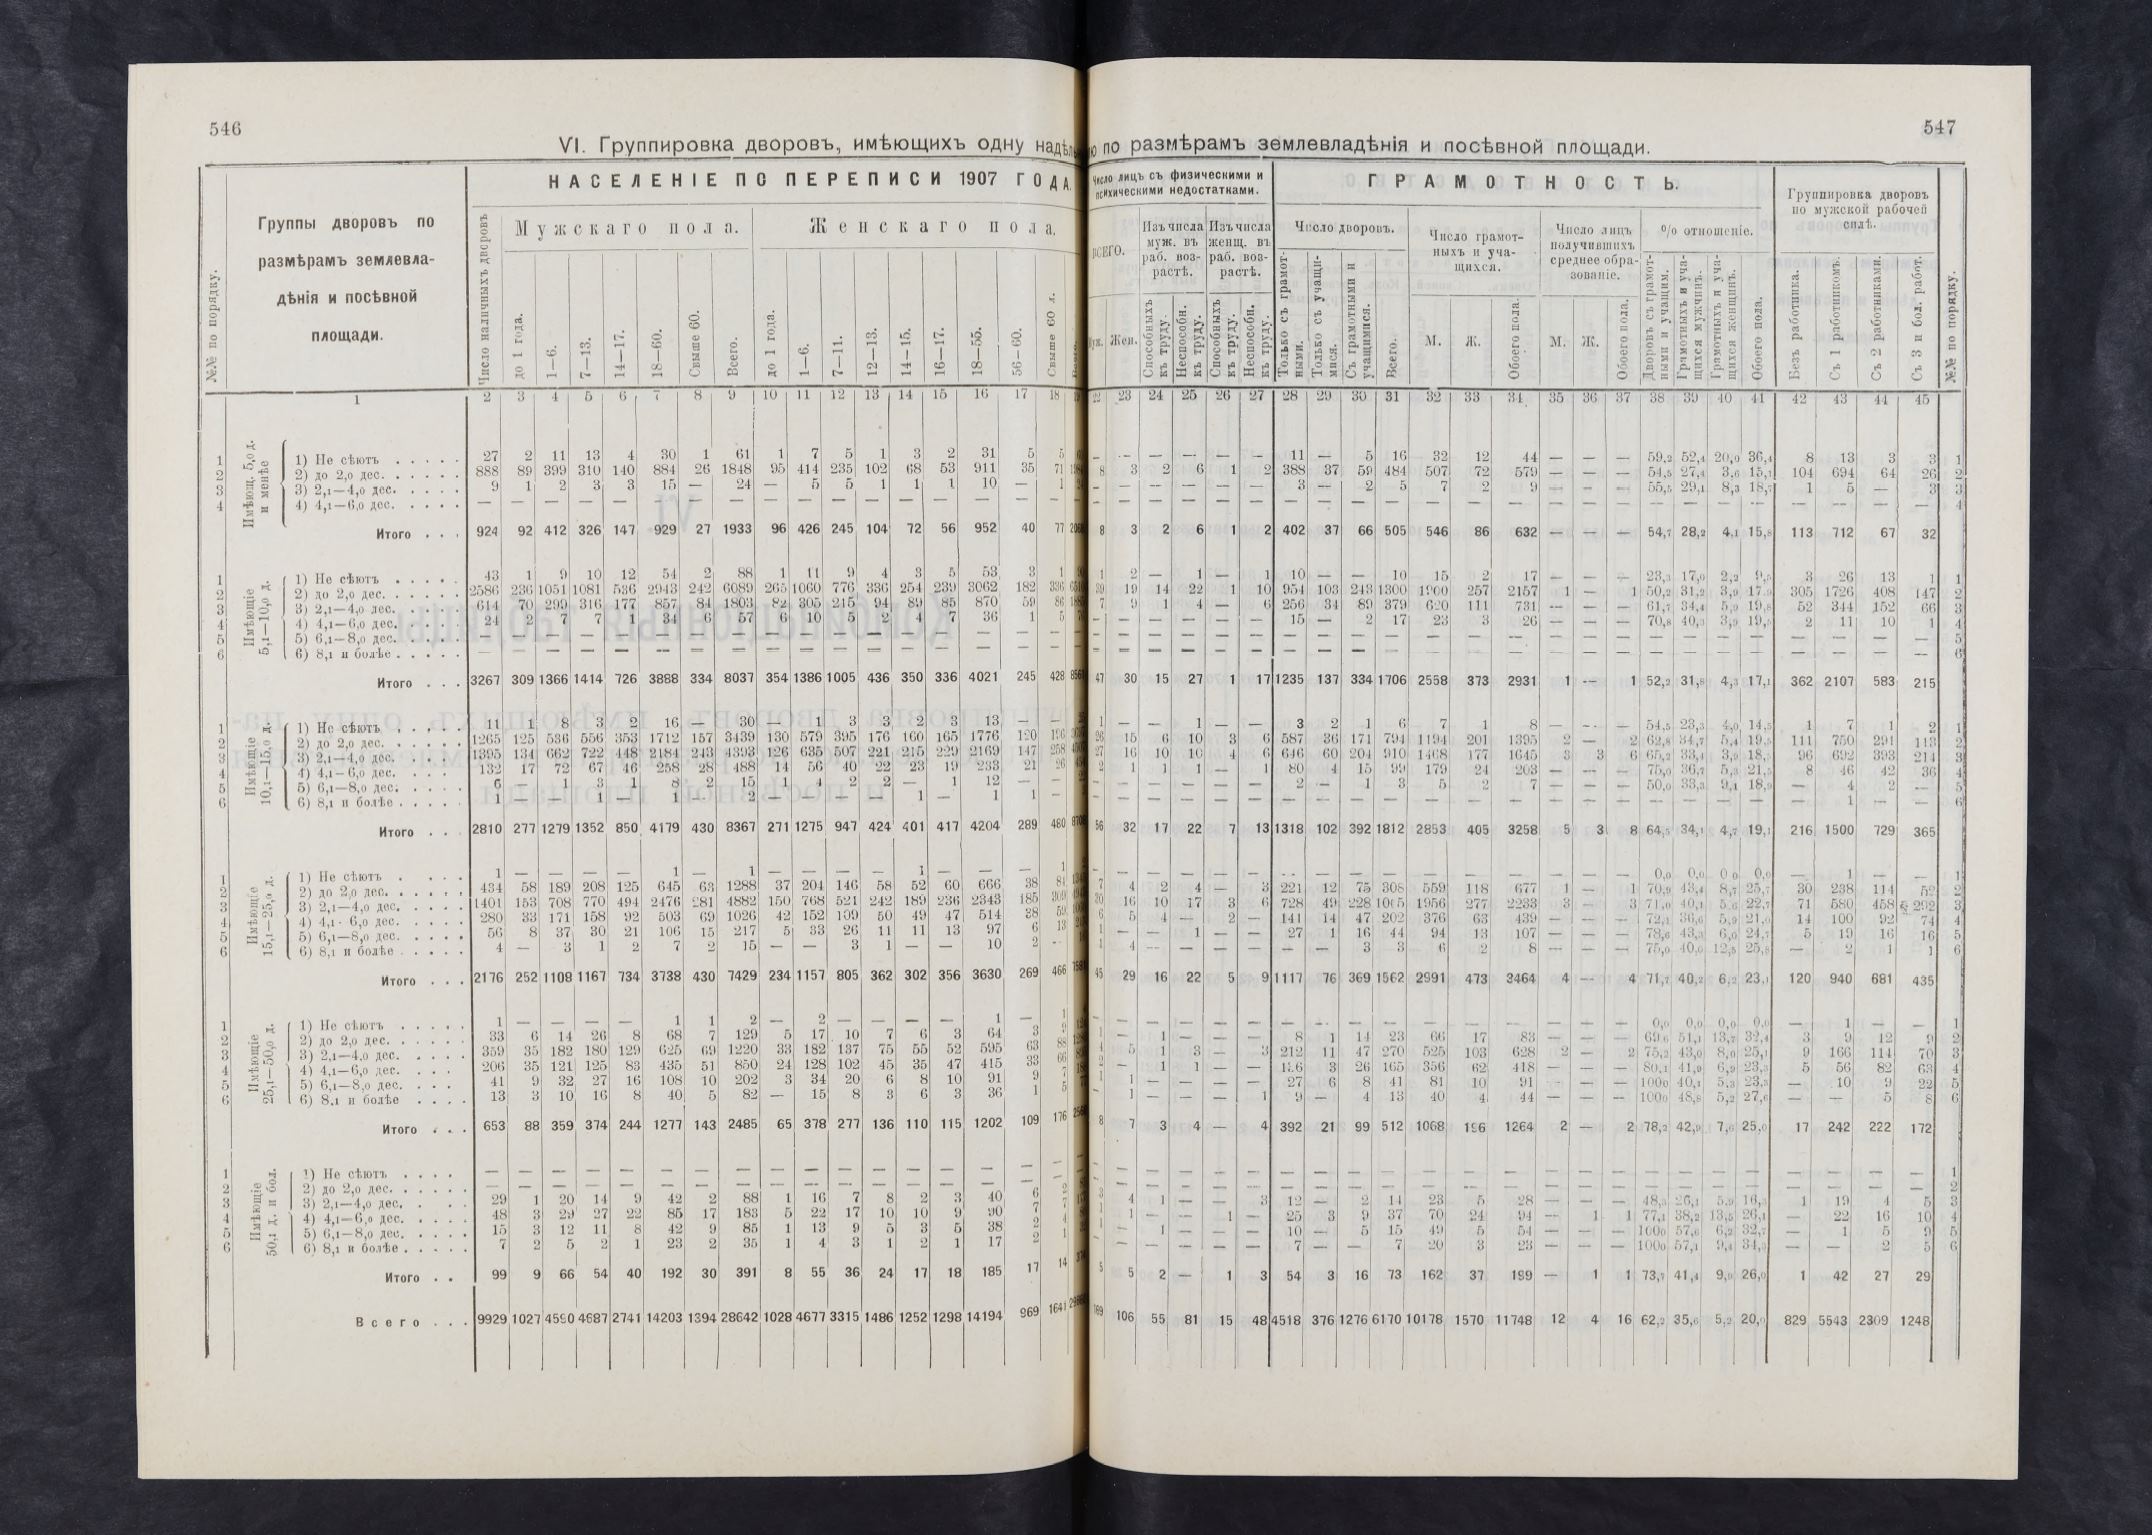 546
VI. Группировка дворовъ, имѣющихъ одну
№№ по порядку.
Группы дворовъ по
размѣрамъ землевла-
дѣнія и посѣвной
площади.
НАСЕЛЕНІЕ ПО ПЕРЕПИСИ 1907 ГОДА.
Число наличныхъ дворовъ
Мужскаго пола.
Женскаго пола.
до 1 года. 1—6. 7—13. 14—17. 18—60. Свыше 60. Всего. до 1 года. 1—6. 7—11. 12—13. 14—15. 16—17. 18—55. 56—60. Свыше 60 л.
1 2 3 4 5 6 7 8 9 10 11 12 13 14 15 16 17 18
Имѣющ. 5,0 д. и менѣе
1 1) Не сѣютъ 27 2 11 13 4 30 1 61 1 7 5 1 3 2 31 5 5
2 2) до 2,0 дес. 888 89 399 310 140 884 26 1848 95 414 235 102 68 53 911 35 71
3 3) 2,1—4,0 дес. 9 1 2 3 3 15 — 24 — 5 5 1 1 1 10 — 1
4 4) 4,1—6,0 дес. — — — — — — — — — — — — — — — — —
Итого 924 92 412 326 147 929 27 1933 96 426 245 104 72 56 952 40 77
Имѣющіе 5,1—10,0 д.
1 1) Не сѣютъ 43 1 9 10 12 54 2 88 1 11 9 4 3 5 53 3 1
2 2) до 2,0 дес. 2586 236 1051 1081 536 2943 242 6089 265 1060 776 336 254 239 3062 182 336
3 3) 2,1—4,0 дес. 614 70 299 316 177 857 84 1803 82 305 215 94 89 85 870 59 86
4 4) 4,1—6,0 дес. 24 2 7 7 1 34 6 57 6 10 5 2 4 7 36 1 5
5 5) 6,1—8,0 дес. — — — — — — — — — — — — — — — — —
6 6) 8,1 и болѣе — — — — — — — — — — — — — — — — —
Итого 3267 309 1366 1414 726 3888 334 8037 354 1386 1005 436 350 336 4021 245 428
Имѣющіе 10,1—15,0 д.
1 1) Не сѣютъ 11 1 8 3 2 16 — 30 — 1 3 3 2 3 13 — —
2 2) до 2,0 дес. 1265 125 536 556 353 1712 157 3439 130 579 395 176 160 165 1776 120 196
3 3) 2,1—4,0 дес. 1395 134 662 722 448 2184 243 4393 126 635 507 221 215 229 2169 147 258
4 4) 4,1—6,0 дес. 132 17 72 67 46 258 28 488 14 56 40 22 23 19 233 21 26
5 5) 6,1—8,0 дес. 6 — 1 3 1 8 2 15 1 4 2 2 — 1 12 — —
6 6) 8,1 и болѣе 1 — — 1 — 1 — 2 — — — — 1 — 1 1 —
Итого 2810 277 1279 1352 850 4179 430 8367 271 1275 947 424 401 417 4204 289 480
Имѣющіе 15,1—25,0 д.
1 1) Не сѣютъ 1 — — — — 1 — 1 — — — — 1 — — — 1
2 2) до 2,0 дес. 434 58 189 208 125 645 63 1288 37 204 146 58 52 60 666 38 81
3 3) 2,1—4,0 дес. 1401 153 708 770 494 2476 281 4882 150 768 521 242 189 236 2343 185 309
4 4) 4,1—6,0 дес. 280 33 171 158 92 503 69 1026 42 152 109 50 49 47 514 38 59
5 5) 6,1—8,0 дес. 56 8 37 30 21 106 15 217 5 33 26 11 11 13 97 6 13
6 6) 8,1 и болѣе 4 — 3 1 2 7 2 15 — — 3 1 — — 10 2 —
Итого 2176 252 1108 1167 734 3738 430 7429 234 1157 805 362 302 356 3630 269 466
Имѣющіе 25,1—50,0 д.
1 1) Не сѣютъ 1 — — — — 1 1 2 — 2 — — — — 1 — 1
2 2) до 2,0 дес. 33 6 14 26 8 68 7 129 5 17 10 7 6 3 64 3
3 3) 2,1—4,0 дес. 359 35 182 180 129 625 69 1220 33 182 137 75 55 52 595 63 88
4 4) 4,1—6,0 дес. 206 35 121 125 83 435 51 850 24 128 102 45 35 47 415 33 66
5 5) 6,1—8,0 дес. 41 9 32 27 16 108 10 202 3 34 20 6 8 10 91 9
6 6) 8,1 и болѣе 13 3 10 16 8 40 5 82 — 15 8 3 6 3 36 1 5
Итого 653 88 359 374 244 1277 143 2485 65 378 277 136 110 115 1202 109 176
Имѣющіе 50,1 д. и бол.
1 1) Не сѣютъ — — — — — — — — — — — — — — — — —
2 2) до 2,0 дес. — — — — — — — — — — — — — — — — —
3 3) 2,1—4,0 дес. 29 1 20 14 9 42 2 88 1 16 7 8 2 3 40 6
4 4) 4,1—6,0 дес. 48 3 29 27 22 85 17 183 5 22 17 10 10 9 90 7
5 5) 6,1—8,0 дес. 15 3 12 11 8 42 9 85 1 13 9 5 3 5 38 2
6 6) 8,1 и болѣе 7 2 5 2 1 23 2 35 1 4 3 1 2 1 17 2
Итого 99 9 66 54 40 192 30 391 8 55 36 24 17 18 185 17 14
Всего 9929 1027 4590 4687 2741 14203 1394 28642 1028 4677 3315 1486 1252 1298 14194 969 1641
547
по размѣрамъ землевладѣнія и посѣвной площади.
Число лицъ съ физическими и психическими недостатками.
ВСЕГО.
Изъ числа муж. въ раб. возрастѣ.
Изъ числа женщ. въ раб. возрастѣ.
Жен. Способныхъ къ труду. Неспособн. къ труду. Способныхъ къ труду. Неспособн. къ труду.
ГРАМОТНОСТЬ.
Число дворовъ.
Только съ грамотными. Только съ учащимися. Съ грамотными и учащимися. Всего.
Число грамотныхъ и учащихся.
М. Ж. Обоего пола.
Число лицъ получившихъ среднее образованіе.
М. Ж. Обоего пола.
% отношеніе.
Дворовъ съ грамотными и учащим. Грамотныхъ и учащихся мужчинъ. Грамотныхъ и учащихся женщинъ. Обоего пола.
Группировка дворовъ по мужской рабочей силѣ.
Безъ работника. Съ 1 работникомъ. Съ 2 работниками. Съ 3 и бол. работ.
№№ по порядку.
22 23 24 25 26 27 28 29 30 31 32 33 34 35 36 37 38 39 40 41 42 43 44 45
— — — — — — 11 — 5 16 32 12 44 — — — 59,2 52,4 20,0 36,4 8 13 3 3 1
8 3 2 6 1 2 388 37 59 484 507 72 579 — — — 54,5 27,4 3,6 15,1 104 694 64 26 2
— — — — — — 3 — 2 5 7 2 9 — — — 55,5 29,1 8,3 18,7 1 5 — 3 3
— — — — — — — — — — — — — — — — — — — — — — — — 4
8 3 2 6 1 2 402 37 66 505 546 86 632 — — — 54,7 28,2 4,1 15,8 113 712 67 32
1 2 — 1 — 1 10 — — 10 15 2 17 — — — 23,3 17,0 2,2 9,5 3 26 13 1 1
39 19 14 22 1 10 954 103 243 1300 1900 257 2157 1 — 1 50,2 31,2 3,9 17,9 305 1726 408 147 2
7 9 1 4 — 6 256 34 89 379 620 111 731 — — — 61,7 34,4 5,9 19,8 52 344 152 66 3
— — — — — — 15 — 2 17 23 3 26 — — — 70,8 40,3 3,9 19,5 2 11 10 1 4
— — — — — — — — — — — — — — — — — — — — — — — — 5
— — — — — — — — — — — — — — — — — — — — — — — — 6
47 30 15 27 1 17 1235 137 334 1706 2558 373 2931 1 — 1 52,2 31,8 4,3 17,1 362 2107 583 215
1 — — 1 — — 3 2 1 6 7 1 8 — — — 54,5 23,3 4,0 14,5 1 7 1 2 1
26 15 6 10 3 6 587 36 171 794 1194 201 1395 2 — 2 62,8 34,7 5,4 19,5 111 750 291 113 2
27 16 10 10 4 6 646 60 204 910 1468 177 1645 3 3 6 65,2 33,4 3,9 18,5 96 692 393 214 3
2 1 1 1 — 1 80 4 15 99 179 24 203 — — — 75,0 36,7 5,3 21,5 8 46 42 36 4
— — — — — — 2 — 1 3 5 2 7 — — — 50,0 33,3 9,1 18,9 — 4 2 — 5
— — — — — — — — — — — — — — — — — — — — — 1 — — 6
56 32 17 22 7 13 1318 102 392 1812 2853 405 3258 5 3 8 64,5 34,1 4,7 19,1 216 1500 729 365
— — — — — — — — — — — — — — — — 0,0 0,0 0,0 0,0 — 1 — — 1
7 4 2 4 — 3 221 12 75 308 559 118 677 1 — 1 70,9 43,4 8,7 25,7 30 238 114 52 2
30 16 10 17 3 6 728 49 228 1005 1956 277 2233 3 — 3 71,0 40,1 5,6 22,7 71 580 458 292 3
6 5 4 — 2 — 141 14 47 202 376 63 439 — — — 72,1 36,6 5,9 21,0 14 100 92 74 4
1 — — 1 — — 27 1 16 44 94 13 107 — — — 78,6 43,3 6,0 24,7 5 19 16 16 5
1 4 — — — — — — 3 3 6 2 8 — — — 75,0 40,0 12,5 25,8 — 2 1 1 6
45 29 16 22 5 9 1117 76 369 1562 2991 473 3464 4 — 4 71,7 40,2 6,2 23,1 120 940 681 435
— — — — — — — — — — — — — — — — 0,0 0,0 0,0 0,0 — 1 — — 1
1 — 1 — — — 8 1 14 23 66 17 83 — — — 69,6 51,1 13,7 32,4 3 9 12 9 2
4 5 1 3 — 3 212 11 47 270 525 103 628 2 — 2 75,2 43,0 8,0 25,1 9 166 114 70 3
— 1 1 — — 136 3 26 165 356 62 418 — — — 80,1 41,9 6,9 23,3 5 56 82 63 4
1 1 — — — — 27 6 8 41 81 10 91 — — — 100,0 40,1 5,3 23,3 — 10 9 22 5
1 — — — 1 9 — 4 13 40 4 44 — — — 100,0 48,8 5,2 27,6 — — 5 8 6
8 7 3 4 — 4 392 21 99 512 1068 196 1264 2 — 2 78,2 42,9 7,6 25,0 17 242 222 172
— — — — — — — — — — — — — — — — — — — — — — — — 1
— — — — — — — — — — — — — — — — — — — — — — — — 2
3 4 1 — — 3 12 — 2 14 23 5 28 — — — 48,3 26,1 5,9 16,3 1 19 4 5 3
1 1 — — 1 — 25 3 9 37 70 24 94 — 1 1 77,1 38,2 13,5 26,1 — 22 16 10 4
1 — 1 — — — 10 — 5 15 49 5 54 — — — 100,0 57,6 6,2 32,7 — 1 5 9 5
— — — — — — 7 — — 7 20 3 23 — — — 100,0 57,1 9,4 34,3 — — 2 5 6
5 5 2 — 1 3 54 3 16 73 162 37 199 — 1 1 73,7 41,4 9,0 26,0 1 42 27 29
169 106 55 81 15 48 4518 376 1276 6170 10178 1570 11748 12 4 16 62,2 35,6 5,2 20,0 829 5543 2309 1248